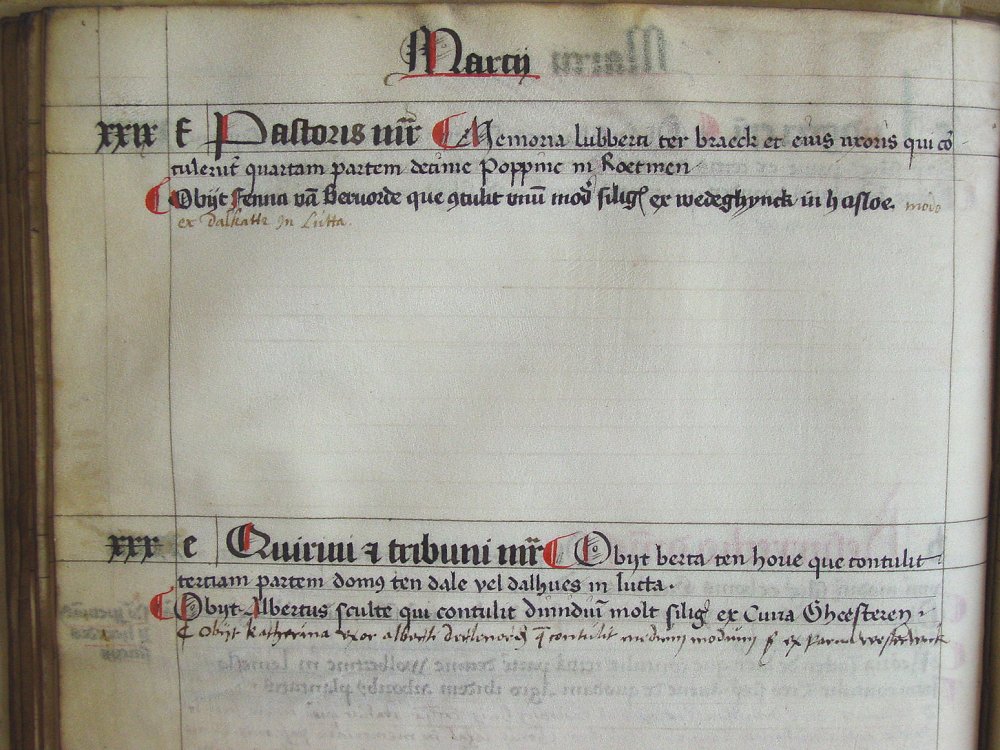 Martij
xxix f Pastoris mr̄ Memoria lubberti ter braeck et eius uxoris qui cō
tulerūt quartam partem decime Poppinc in Roetmen
Obijt Fenna vā Beruorde que ꝯtulit vnū mod siligꝭ ex wedeghynck in hasloe. modo
ex Dalkatte In Lutta.
xxx e Quirini ⁊ tribuni mr̄ Obijt berta ten houe que contulit
terciam partem domꝰ ten dale vel dalhues in lucta.
Obijt Albertus sculte qui contulit dimidiū molt silig ex Curia Gheesteren.
Obijt katherina uxor alberti que contulit medium modium ex parua westerwick